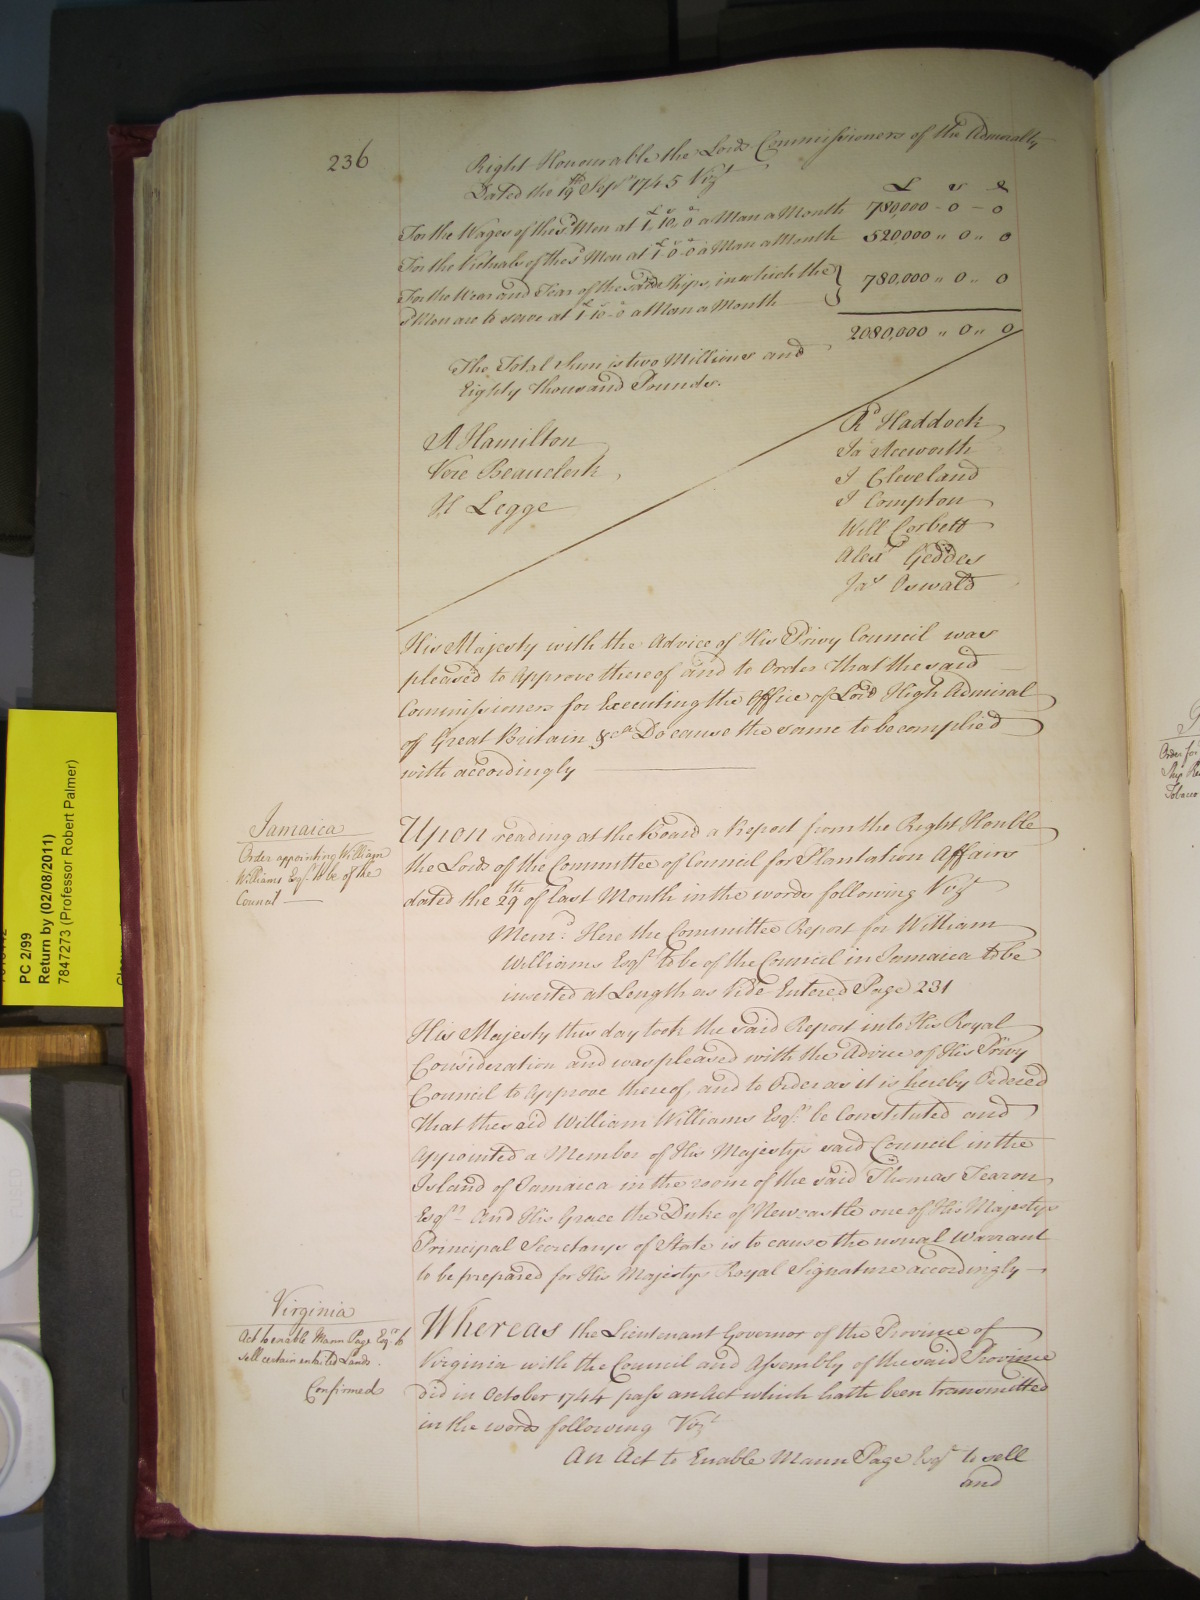 236
Right Honourable the Lords Commissioners of the Admiralty
Dated the 19th Sepr 1745 Vizt
£ s d
For the Wages of the sd Men at £1,,10s,,0d a Man a Month 780,000 - 0 - 0
For the Victuals of the sd Men at £1 - 0s - 0d a Man a Month 520,000 ,, 0 ,, 0
For the Wear and Tear of the said Ships, in which the
sd Men are to serve at £1 10s - 0d a Man a Month 780,000 ,, 0 ,, 0
2080,000 ,, 0 ,, 0
The Total Sum is two Millions and
Eighty thousand Pounds.
A Hamilton
Vere Beauclerk
H Legge
Rd Haddock
Ja Acworth
J Cleveland
J Compton
Will Corbett
Alexr Geddes
Jas Oswald
His Majesty with the Advice of His Privy Council was
pleased to Approve thereof and to Order That the said
Commissioners for Executing the Office of Lord High Admiral
of Great Britain &ca Do cause the same to be complied
with accordingly
Jamaica
Order appointing William
Williams Esqr to be of the
Council
Upon reading at the Board a Report from the Right Honble
the Lords of the Committee of Council for Plantation Affairs
dated the 29th of last Month in the words following Vizt
Memd: Here the Committee Report for William
Williams Esqr to be of the Council in Jamaica to be
inserted at Length as Vide Entered Page 231
His Majesty this day took the said Report into His Royal
Consideration and was pleased with the Advice of His Privy
Council to Approve thereof, and to Order as it is hereby Ordered
That the said William Williams Esqr: be Constituted and
Appointed a Member of His Majestys said Council in the
Island of Jamaica in the room of the said Thomas Fearon
Esqr- And His Grace the Duke of Newcastle one of His Majestys
Principal Secretarys of State is to cause the usual Warrant
to be prepared for His Majestys Royal Signature accordingly
Virginia
Act to enable Mann Page Esqr to
sell certain entailed Lands.
Confirmed
Whereas the Lieutenant Governor of the Province of
Virginia with the Council and Assembly of the said Province
did in October 1744 pass an Act which hath been transmitted
in the words following Vizt
An Act to Enable Mann Page Esqr to sell
and
PC 2/99
Return by (02/08/2011)
7847273 (Professor Robert Palmer)
Order for
Tobacco